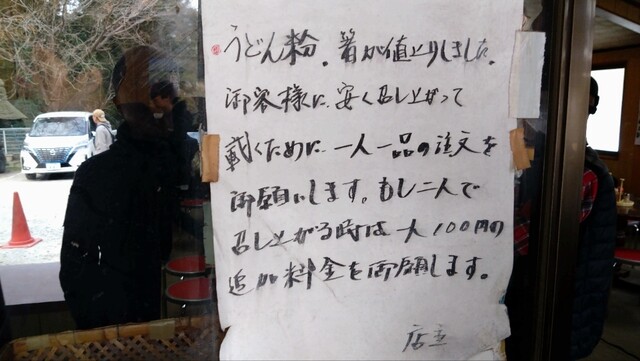 うどん粉。箸が値上りしました。
御客様に、安く召し上がって
戴くために、一人一品の注文を
御願いします。もし二人で
召し上がる時は一人100円の
追加料金を御願します。
店主